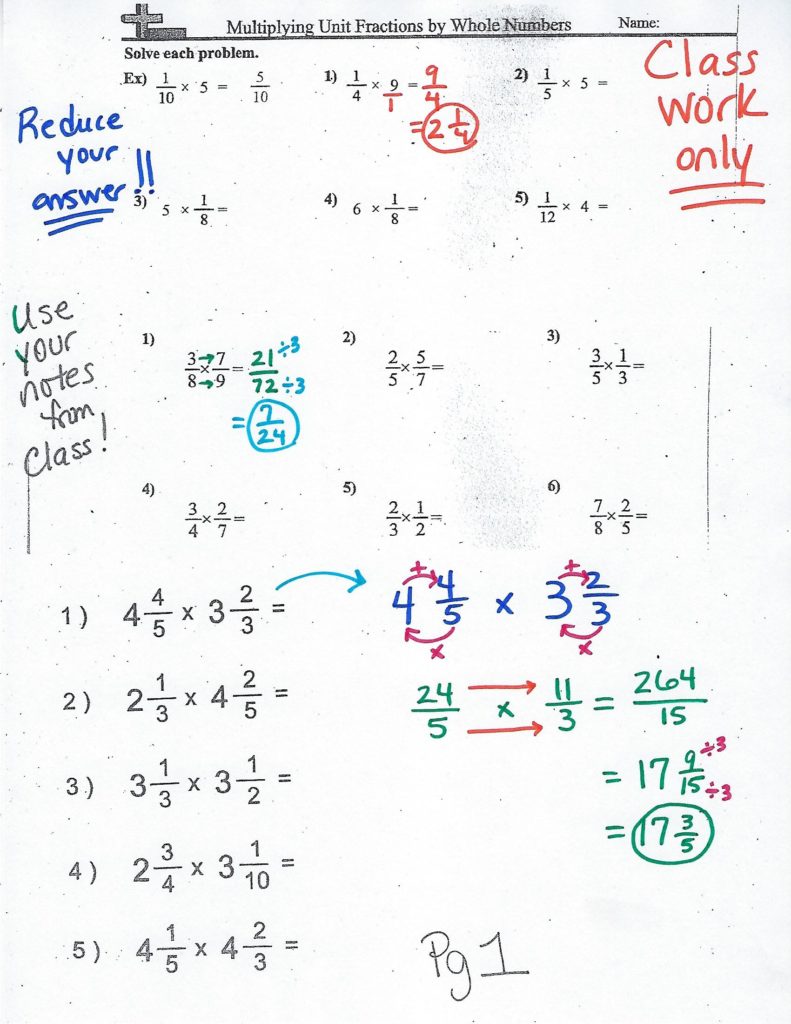 Multiplying Unit Fractions by Whole Numbers Name:
Solve each problem.
Ex) 1/10 × 5 = 5/10
1) 1/4 × 9/1 = 9/4
= 2 1/4
2) 1/5 × 5 =
Class
work
only
Reduce
your
answer!!
3) 5 × 1/8 =
4) 6 × 1/8 =
5) 1/12 × 4 =
Use
your
notes
from
Class!
1) 3/8 × 7/9 = 21/72 ÷3 ÷3
= 7/24
2) 2/5 × 5/7 =
3) 3/5 × 1/3 =
4) 3/4 × 2/7 =
5) 2/3 × 1/2 =
6) 7/8 × 2/5 =
1) 4 4/5 x 3 2/3 =
+ +
4 4/5 x 3 2/3
x x
24/5 x 11/3 = 264/15
= 17 9/15 ÷3 ÷3
= 17 3/5
2) 2 1/3 x 4 2/5 =
3) 3 1/3 x 3 1/2 =
4) 2 3/4 x 3 1/10 =
5) 4 1/5 x 4 2/3 =
Pg 1